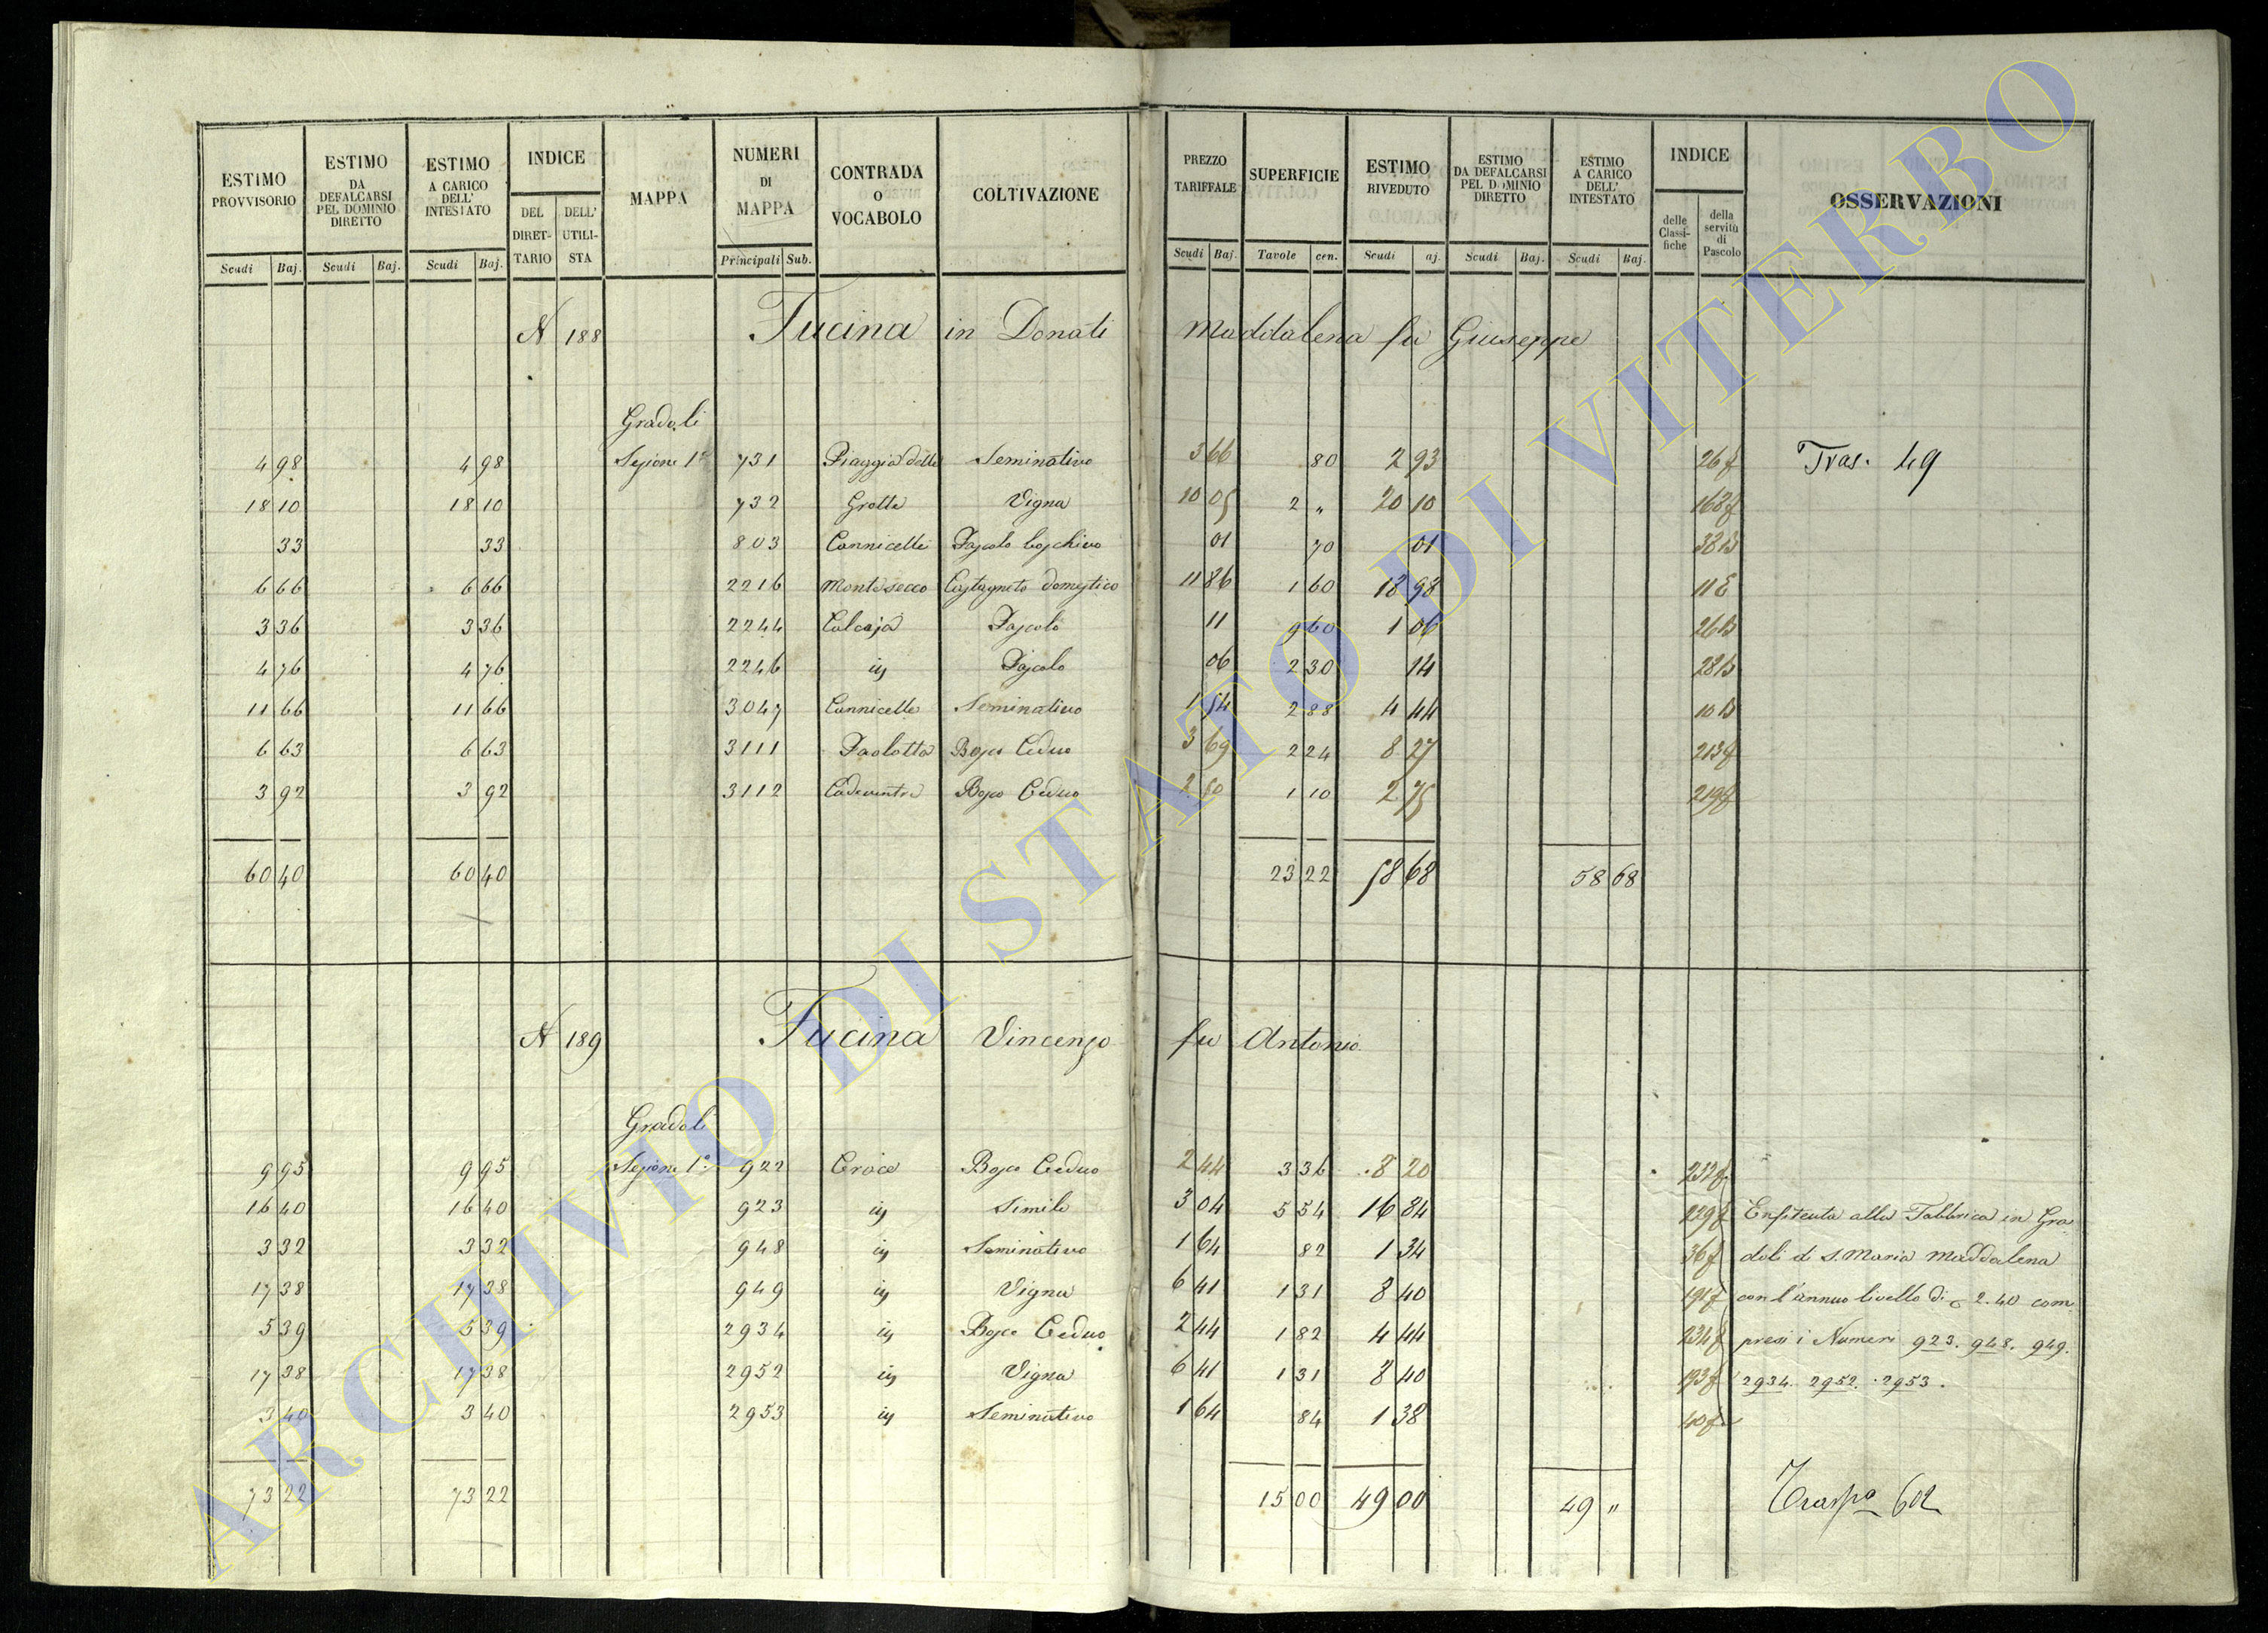 ESTIMO PROVVISORIO | ESTIMO DA DEFALCARSI PEL DOMINIO DIRETTO | ESTIMO A CARICO DELL' INTESTATO | INDICE | MAPPA | NUMERI DI MAPPA | CONTRADA O VOCABOLO | COLTIVAZIONE | PREZZO TARIFFALE | SUPERFICIE | ESTIMO RIVEDUTO | ESTIMO DA DEFALCARSI PEL DOMINIO DIRETTO | ESTIMO A CARICO DELL' INTESTATO | INDICE | OSSERVAZIONI
DEL DIRET-TARIO | DELL' UTILI-STA | delle Classi-fiche | della servitù di Pascolo
Scudi | Baj. | Scudi | Baj. | Scudi | Baj. | Principali | Sub. | Scudi | Baj. | Tavole | cen. | Scudi | aj. | Scudi | Baj. | Scudi | Baj.
N 188 Fucina in Donati Maddalena fu Giuseppe
Gradoli
4 98 | 4 98 | Sezione 1ª | 731 | Piaggia delle | Seminativo | 3 66 | 80 | 2 93 | 26 f | Tras. 49
18 10 | 18 10 | 732 | Grotte | Vigna | 10 05 | 2 „ | 20 10 | 163 f
33 | 33 | 803 | Cannicelle | Pascolo boschivo | 01 | 70 | 01 | 38 B
6 66 | 6 66 | 2216 | Montesecco | Castagneto domestico | 11 86 | 1 60 | 18 98 | 11 E
3 36 | 3 36 | 2244 | Pascolo | 11 | 9 60 | 1 06 | 26 B
4 76 | 4 76 | 2246 | Pascolo | 06 | 2 30 | 14 | 28 B
11 66 | 11 66 | 3047 | Cannicelle | Seminativo | 1 54 | 2 88 | 4 44 | 10 B
6 63 | 6 63 | 3111 | Paolotta | Bosco Ceduo | 3 69 | 2 24 | 8 27 | 213 f
3 92 | 3 92 | 3112 | Bosco Ceduo | 2 50 | 1 10 | 2 75 | 219 f
60 40 | 60 40 | 23 22 | 58 68 | 58 68
N 189 Fucina Vincenzo fu Antonio
Gradoli
9 95 | 9 95 | Sezione 1ª | 922 | Croce | Bosco Ceduo | 2 44 | 3 36 | 8 20 | 232 f
16 40 | 16 40 | 923 | Simile | 3 04 | 5 54 | 16 84 | 229 f | Enfiteuta alla Fabbrica in Gra
3 32 | 3 32 | 948 | Seminativo | 1 64 | 82 | 1 34 | 36 f | doli di S. Maria Maddalena
17 38 | 17 38 | 949 | Vigna | 6 41 | 1 31 | 8 40 | 191 f | con l'annuo livello di 2.40 com
5 39 | 5 39 | 2934 | Bosco Ceduo | 2 44 | 1 82 | 4 44 | 234 f | presi i Numeri 923. 948. 949.
17 38 | 17 38 | 2952 | Vigna | 6 41 | 1 31 | 8 40 | 193 f | 2934. 2952. 2953.
3 40 | 3 40 | 2953 | Seminativo | 1 64 | 84 | 1 38 | 40 f
73 22 | 73 22 | 15 00 | 49 00 | 49 „ | Trasp° 602
ARCHIVIO DI STATO DI VITERBO